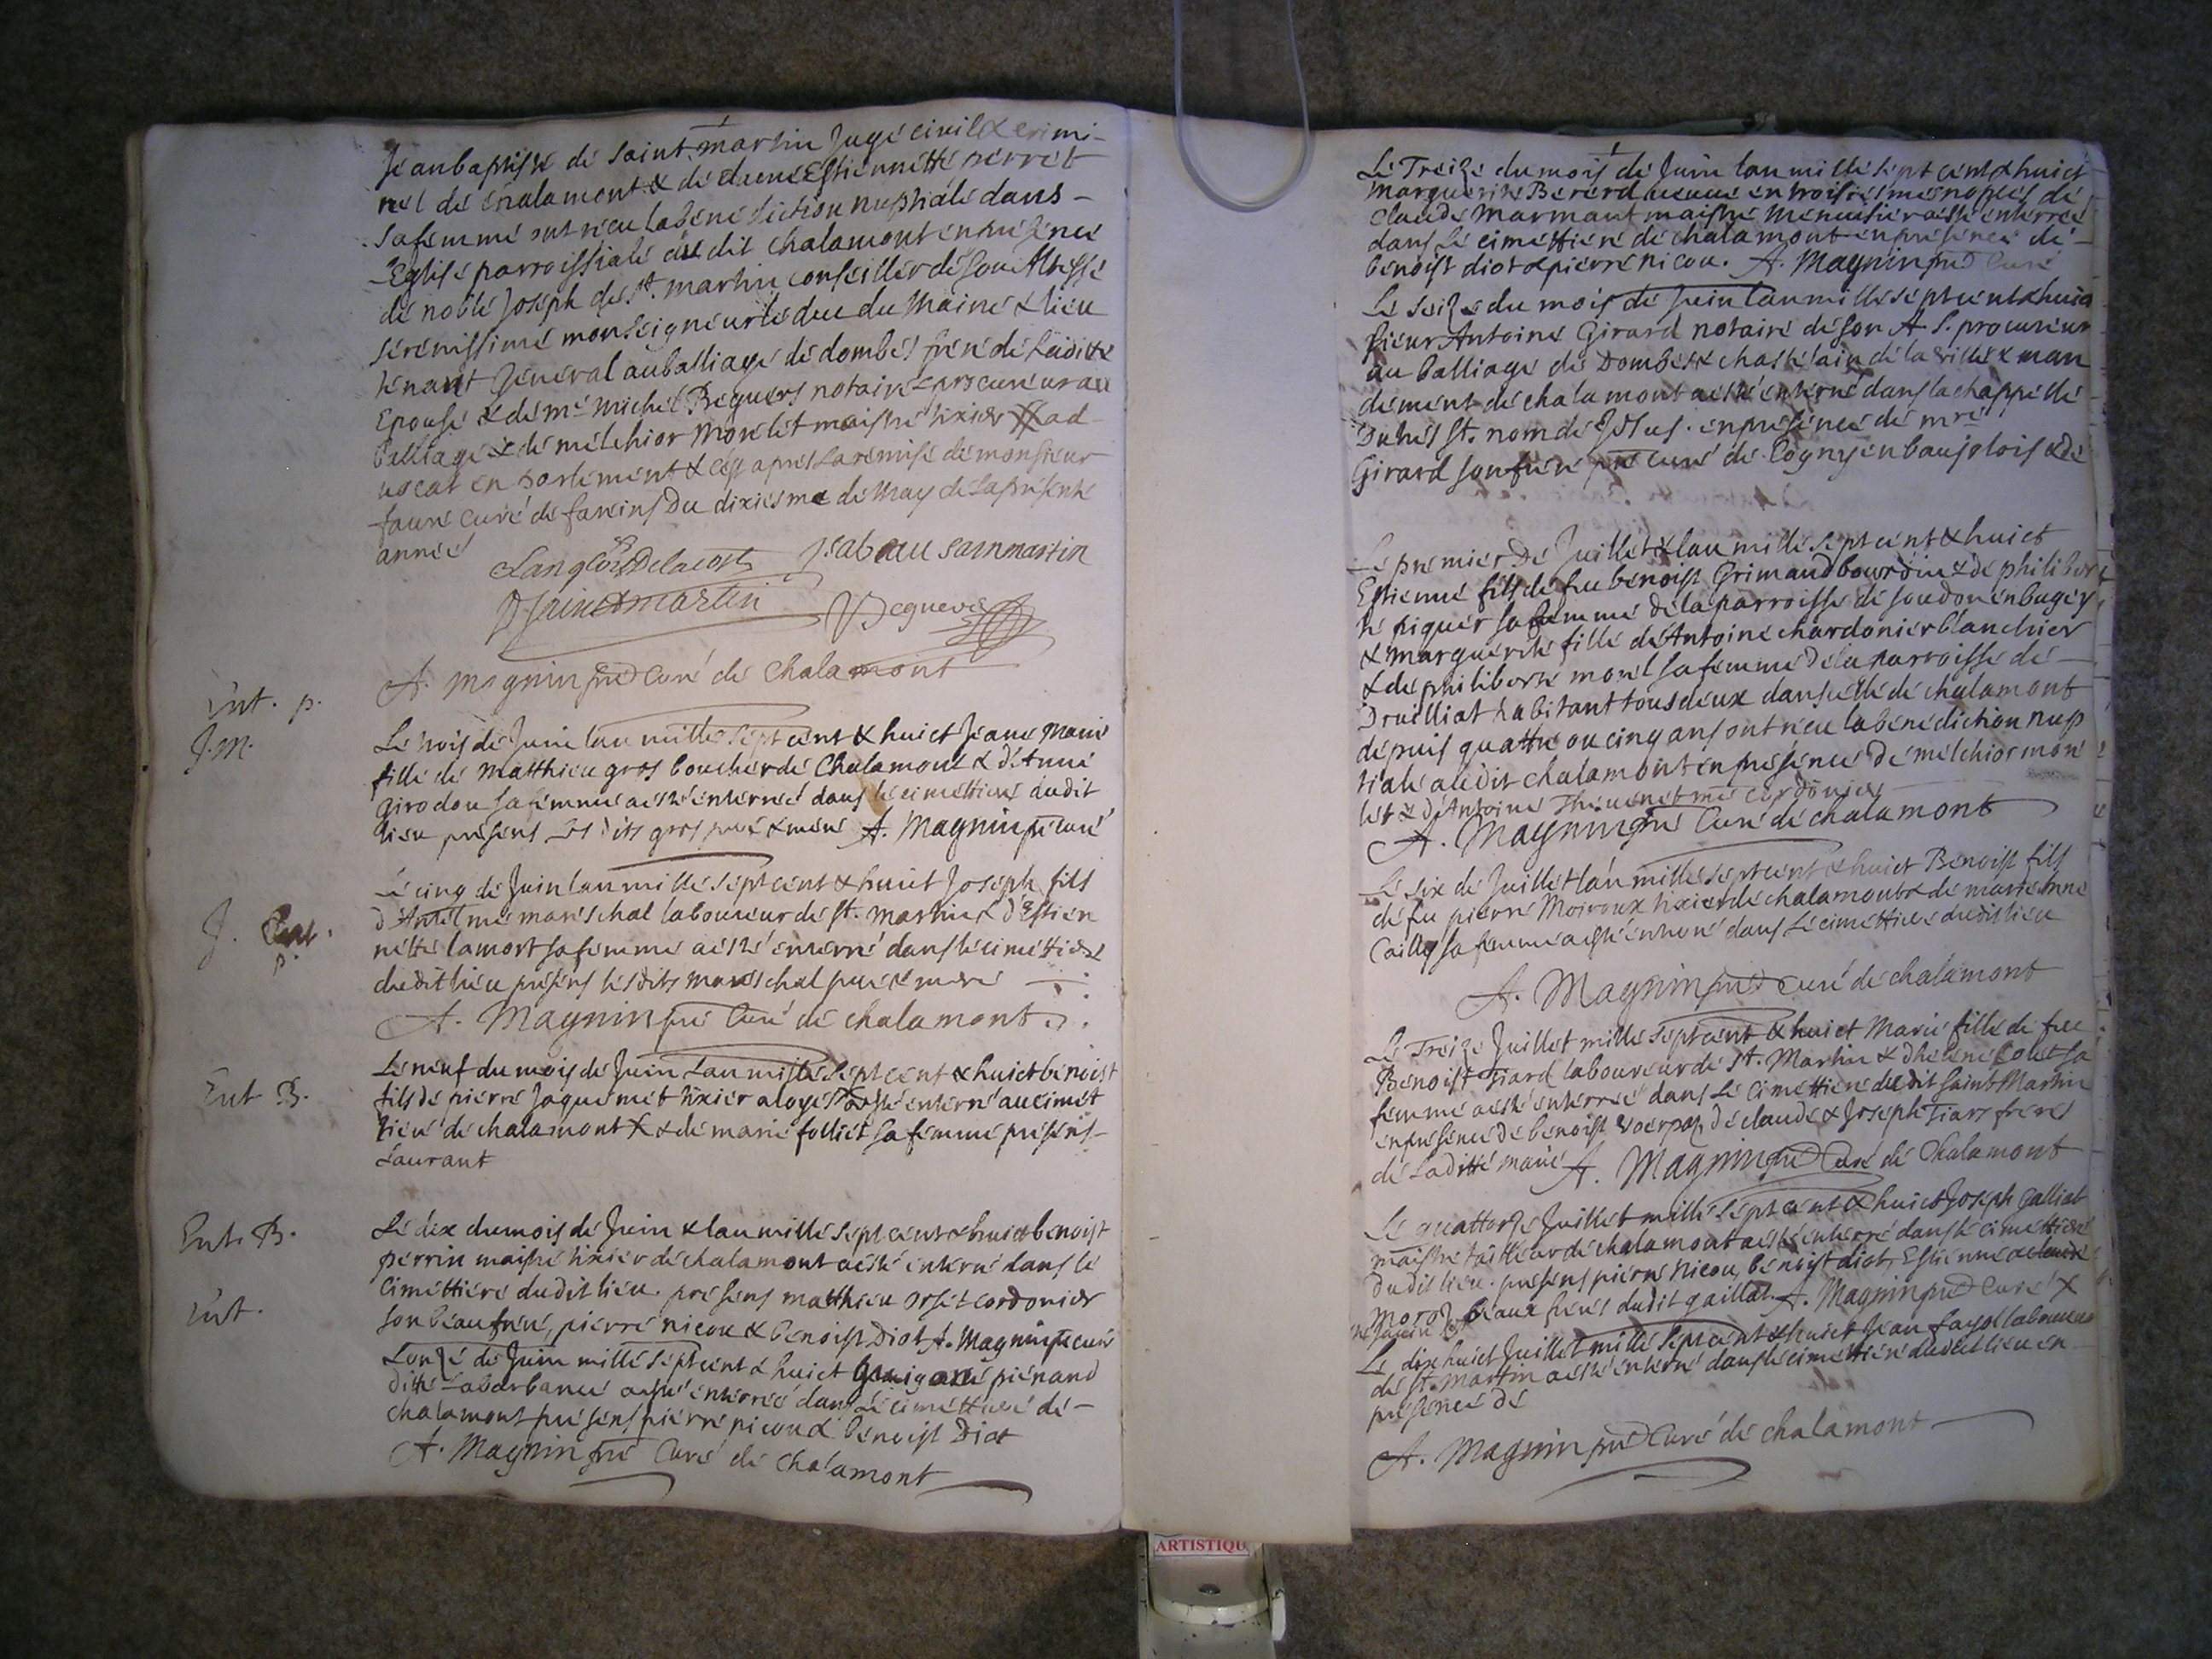 Jeanbaptiste de saint martin Juge civil & crimi-
nel de Chalamont & de dame Estiennette perret
sa femme ont receu la bene diction nuptiale dans-
l'Eglise parroissiale du dit chalamont en presence
de noble Joseph de st. martin conseiller de son Altesse
serenissime monseigneur le duc du Maine & lieu
tenant General au balliage de dombes frere de laditte
Epouse & de me Michel Beguers notaire & procureur au
balliage & de melchior Morelet maistre tixier ad-
uocat en parlement & ce apres la remise de monsieur
faure curé de fareins Du dixiesme de May de la presente
année
Langlois Delacost Isabeau sainmartin
D Sainctmartin Beguers
A. Magnin pre Curé de Chalamont
Ent. p.
J.M.
Le trois de Juin lan mille sept cent & huict Jeane Marie
fille de Matthieu gros boucher de Chalamont & d'Anne
Girodon sa femme a esté enterreé dans le cimettiere dudit
lieu presens les dits gros pere & mere A. Magnin pre curé
J. Ent.
p.
Le cinq de Juin lan mille sept cent & huict Joseph fils
d'Antelme mareschal laboureur de st. martin & d'Estien
nette lamort sa femme a esté enterré dans le cimettiere
dudit lieu presens lesdits mareschal pere & mere
A. Magnin pre Curé de chalamont
Ent B.
Le neuf du mois de Juin Lan mille sept cent & huict benoist
fils de pierre Jaquemet tixier aloyes a esté enterré au cimet
tiere de chalamont X & de marie folliet sa femme presens-
Laurant
Ent. B.
Le dix du mois de Juin & lan mille sept cent & huict benoist
perrin maistre tixier de chalamont a esté enterré dans le
Cimettiere dudit lieu. presens matthieu orset cordonier
son beaufrere, pierre nicou & benoist Diot A. Magnin pre curé
Ent.
Lonze de Juin mille sept cent & huict pienand
ditte Labarbance a esté enterreé dans le cimettiere de-
chalamont presens pierre nicou & benoist Diot
A. Magnin pre Curé de Chalamont
Le Treize du mois de Juin lan mille sept cent & huict
Marguerite Bererd veuue en troisiesme nopces de
Claude Marmant maistre Menuisier a esté enterreé
dans le cimettiere de chalamont en presence de-
benoist diot & pierre nicou. A. Magnin pre Curé
Le seize du mois de Juin lan mille sept cent & huict
sieur Antoine Girard notaire de son A. S. procureur
au balliage de Dombes & chastelain de la ville & man
dement de chalamont a esté enterré dans la chappelle
Du tres st. nom de Jesus. en presence de mre
Girard son frere pre curé de Cogny en baujolois & de
Le premier De Juillet & lan mille sept cent & huict
Estienne fils de feu benoist Grimaud bourdin & de philiber
te piquer sa femme de la parroisse de soudon en bugey
& marguerite fille de Antoine chardonier blanchier
& de philiberte morel sa femme de la parroisse de-
Druilliat habitant tous deux dans celle de chalamont
depuis quattre ou cinq ans ont receu la benediction nup
tiale audit chalamont en presence De melchior more
let & d'Antoine Theuenet me cordonier
A. Magnin pre Curé de chalamont
Le six de Juillet lan mille sept cent & huict Benoist fils
de feu pierre Moiroux tixier de chalamont & de marie Anne
Cailly sa femme a esté enterré dans le cimettiere dudit lieu
A. Magnin pre Curé de chalamont
Le Treize Juillet mille sept cent & huict Marie fille de feu
Benoist Tiard laboureur de st. Martin & d'helene Colet sa
femme a esté enterreé dans le cimettiere dudit saint Martin
en presence de benoist de claude & Joseph Tiard freres
de laditte marie A. Magnin pre Curé de Chalamont
Le quattorze Juillet mille sept cent & huict Joseph Galliat
maistre tailleur de chalamont a esté enterré dans le cimettiere
Dudit lieu. presens pierre Nicou, benoist diot, Estienne & claude
Moroz beaux freres dudit gaillat A. Magnin pre Curé X
Le dix huict Juillet mille sept cent & huict Jean fayol laboureur
de st. Martin a esté enterré dans le cimettiere dudit lieu en
presence de
A. Magnin pre Curé de chalamont
ARTISTIQU